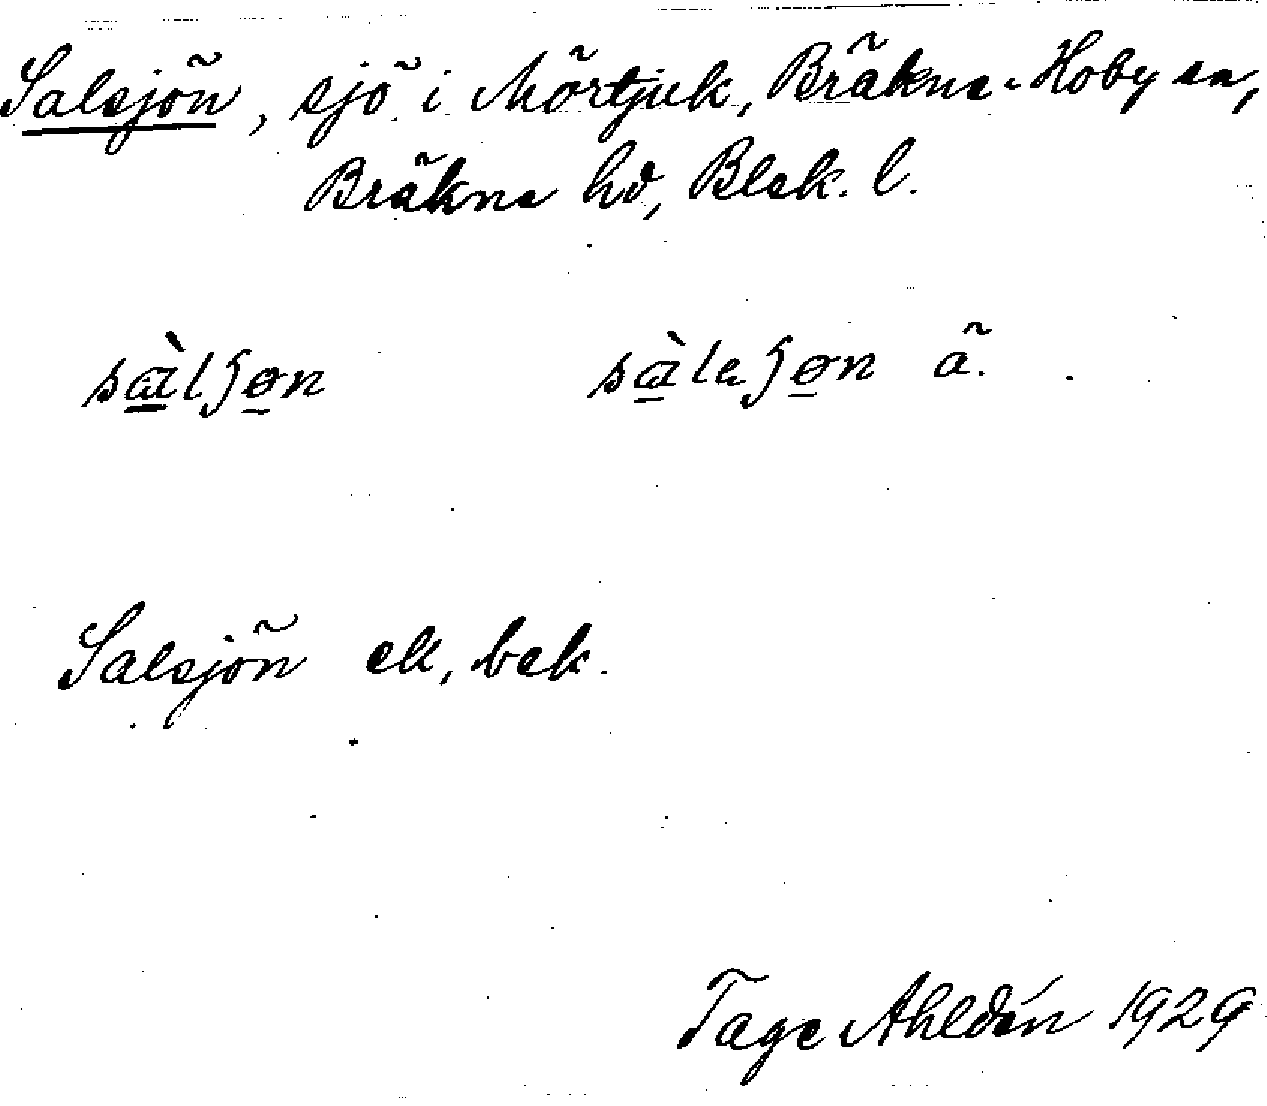 Salsjön, sjö i Mörtjuk, Bräkne-Hoby sn,
Bräkne hd, Blek. l.
sàlʃøn sàleʃøn ä.
Salsjön ek, bek.
Tage Ahldén 1929